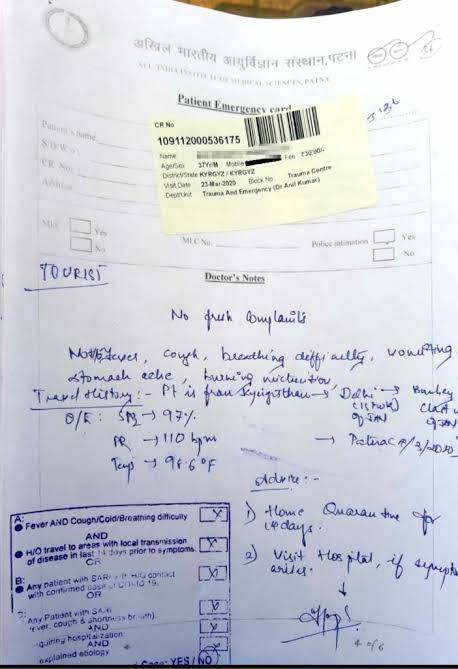 अखिल भारतीय आयुर्विज्ञान संस्थान, पटना
ALL INDIA INSTITUTE OF MEDICAL SCIENCES, PATNA
Patient Emergency card
Patient's name
S/D/W/o
CR. No.
Address
CR No
109112000536175
Name
Age/Sex 37Yr/M Mobile Fee
District/State KYRGYZ / KYRGYZ
Visit Date 23-Mar-2020 Block No Trauma Centre
Dept/Unit Trauma And Emergency (Dr Anil Kumar)
MLC Yes
No
MLC No.
Police intimation Yes
No
TOURIST
Doctor's Notes
No fresh Complaints
fever, cough, breathing difficulty, vomiting
stomach ache, burning micturition
Travel History :- Pt is from → Delhi →
O/E : SPO2 → 97%
PR → 110 bpm
Temp → 96.6°F
Advice :-
1) Home Quarantine for
14 days.
2) Visit Hospital, if symptoms
arises.
A:
Fever AND Cough/Cold/Breathing difficulty
AND
H/O travel to areas with local transmission
of disease in last 14 days prior to symptoms.
OR
B:
Any patient with SARI H/O contact
with confirmed case of COVID 19.
OR
Any Patient with SARI
cough & shortness
AND
quiring hospitalization
AND
explained etiology
Case: YES / NO